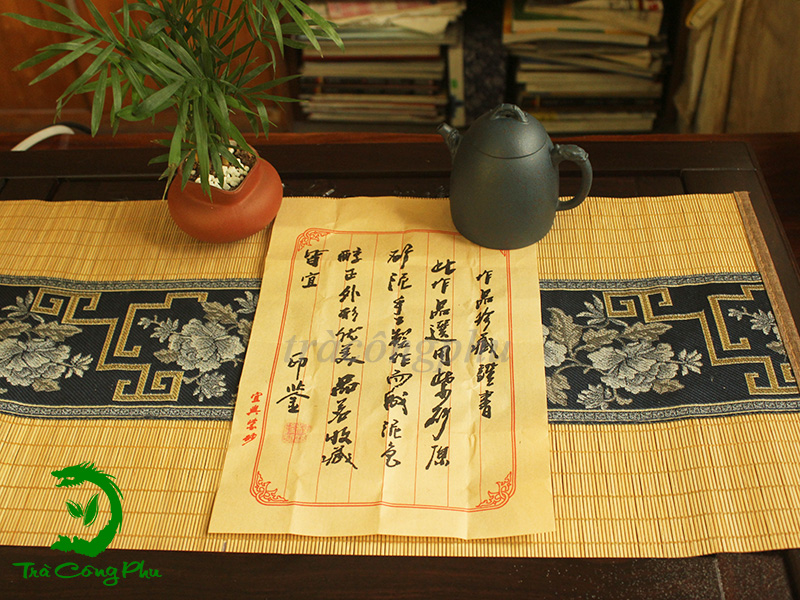 作品珍藏證書
此作品選用紫砂原
矿泥手工製作而成泥色
醇正外形优美品茗收藏
皆宜
印鉴
宜興紫砂
tràcôngphu
Trà Công Phu